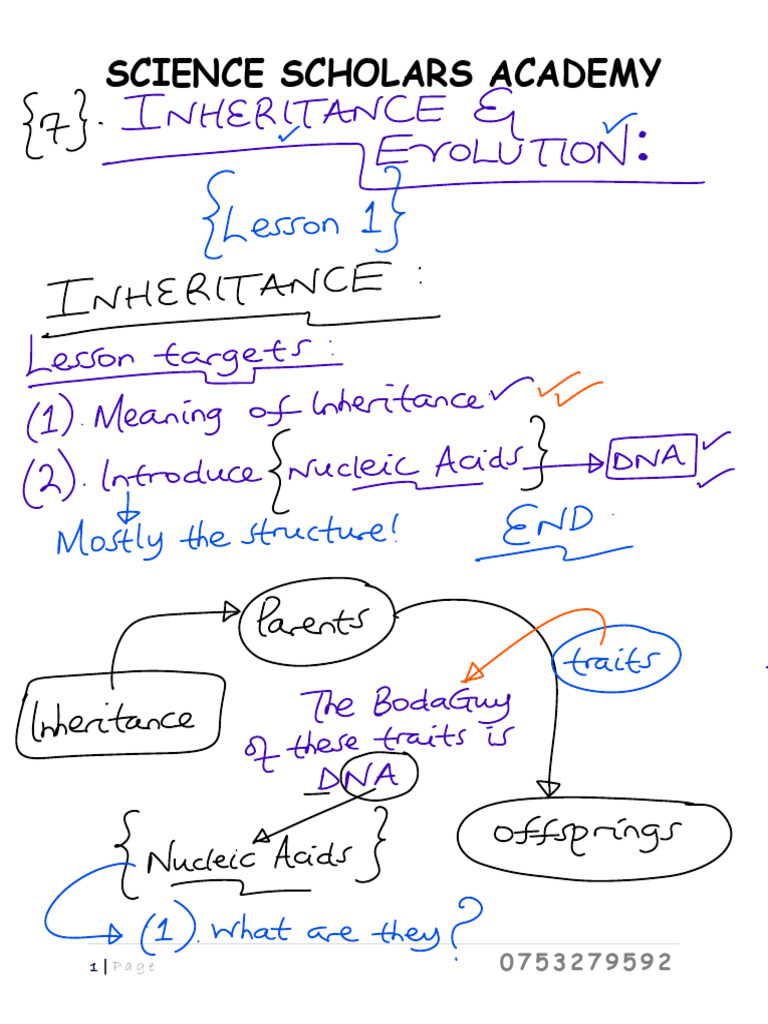 SCIENCE SCHOLARS ACADEMY
{7}. INHERITANCE &
EVOLUTION:
{Lesson 1}
INHERITANCE:
Lesson targets:
(1). Meaning of Inheritance
(2). Introduce {Nucleic Acids} DNA
Mostly the structure!
END.
Parents
traits
Inheritance
The BodaGuy
of these traits is
DNA
offsprings
{Nucleic Acids}
(1). What are they?
1 | Page
0753279592